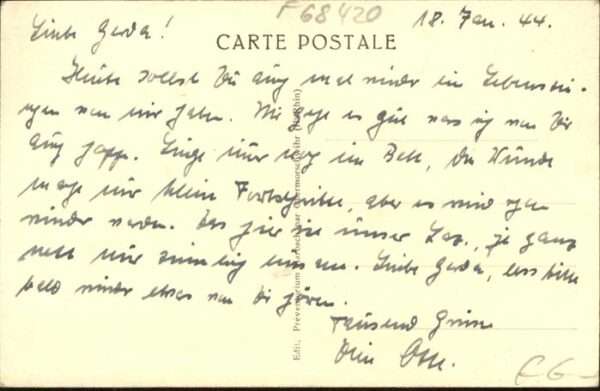 F68420
18. Jan. 44.
Liebe Gerda!
CARTE POSTALE
Heute sollst Du auch mal wieder ein Lebenszei-
chen von mir haben. Mir geht es gut was ich von Dir
auch hoffe. Liege immer noch im Bett, die Wunde
macht nur kleine Fortschritte, aber es wird schon
wieder werden. Das hier ist unser Laz., ganz
nett nur einsam. Liebe Gerda, lass bitte
bald wieder etwas von Dir hören.
Tausend Grüsse
Dein
Edit. Preventorium